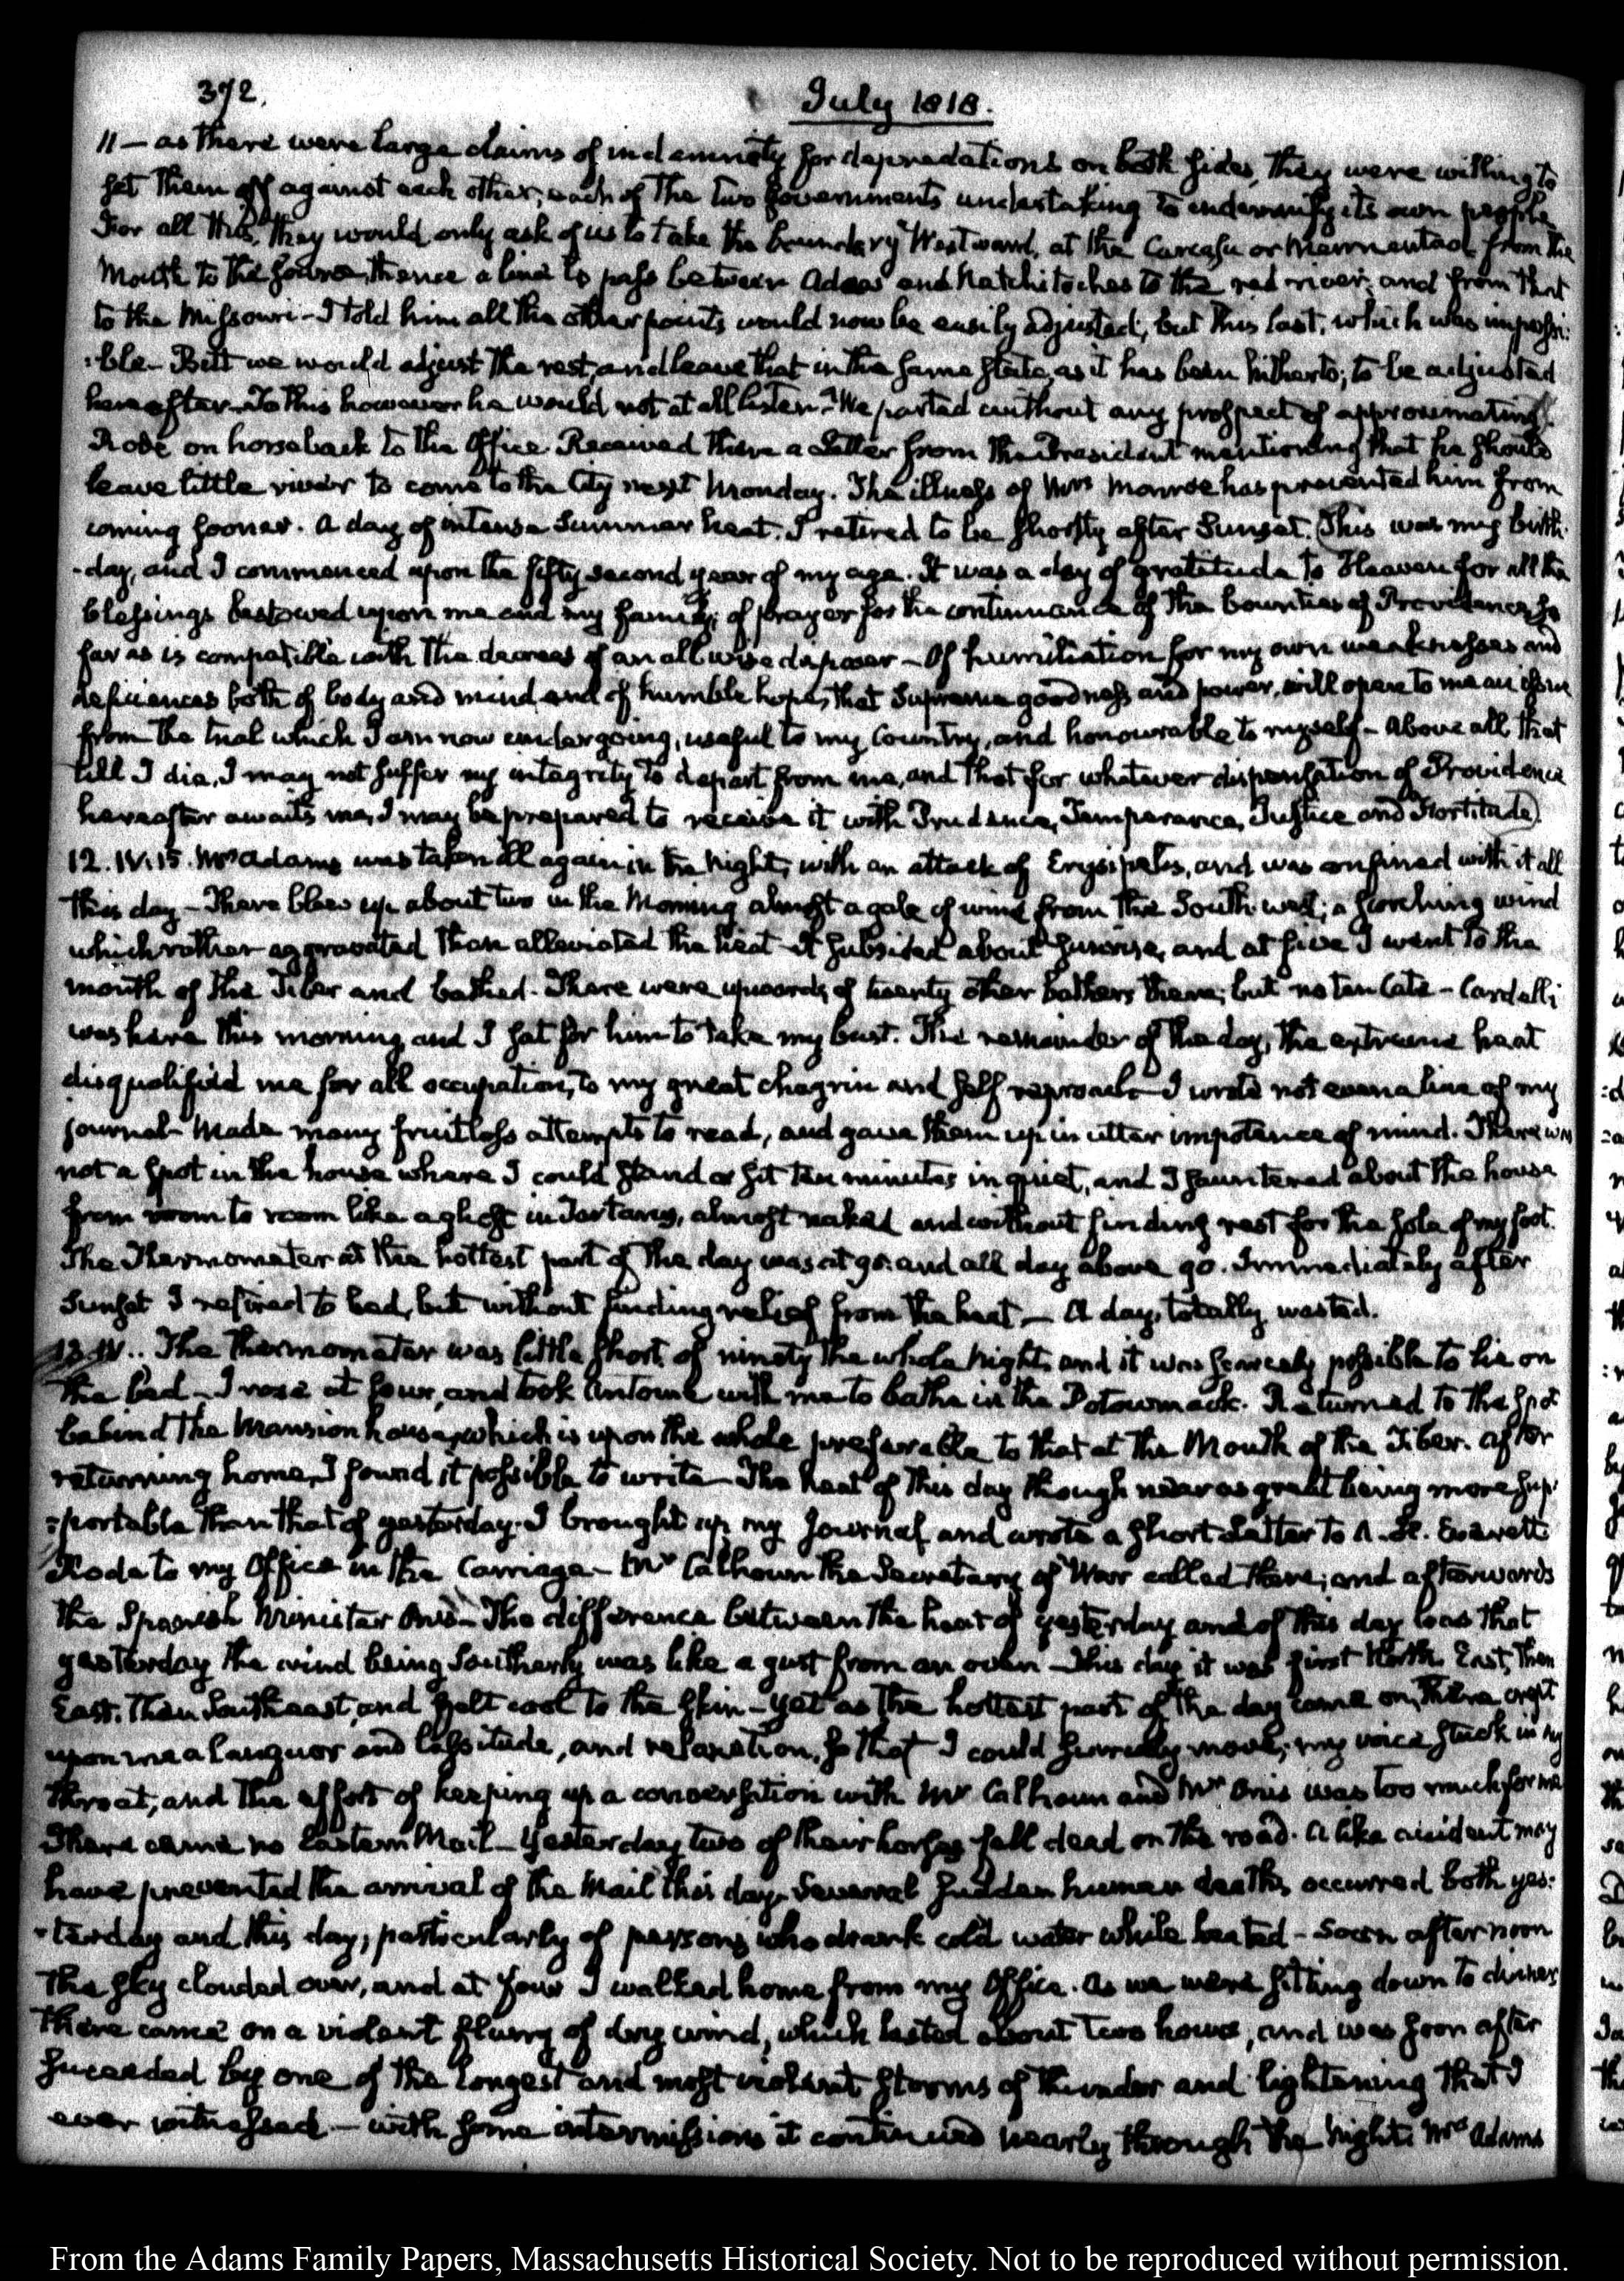 372.
July 1818.
11 — as there were large claims of indemnity for depredations on both sides, they were willing to
set them off against each other; each of the two Governments undertaking to indemnify its own people.
For all this, they would only ask of us to take the boundary Westward, at the Carcasu or Mermentao from the
Mouth to the source, thence a line to pass between Adaes and Natchitoches to the red river; and from that
to the Missouri — I told him all the other points would now be easily adjusted, but this last, which was impossi:
:ble — But we would adjust the rest, and leave that in the same state, as it has been hitherto; to be adjusted
hereafter — To this however he would not at all listen — We parted without any prospect of approximating.
Rode on horseback to the Office. Received there a Letter from the President mentioning that he should
leave little river to come to the City next Monday. The illness of Mrs Monroe has prevented him from
coming sooner. A day of intense Summer heat. I retired to be shortly after Sunset. (This was my birth-
-day, and I commenced upon the fifty second year of my age. It was a day of gratitude to Heaven for all the
blessings bestowed upon me and my family; of prayer for the continuance of the bounties of Providence so
far as is compatible with the decrees of an all wise disposer — Of humiliation for my own weaknesses and
deficiences both of body and mind, and of humble hope, that Supreme goodness and power, will open to me an issue
from the trial which I am now undergoing, useful to my Country, and honourable to myself — Above all that
till I die, I may not suffer my integrity to depart from me, and that for whatever dispensation of Providence
hereafter awaits me, I may be prepared to receive it with Prudence, Temperance, Justice and Fortitude)
12. IV.15. Mrs Adams was taken ill again in the Night, with an attack of Erysipelas, and was confined with it all
this day — There blew up about two in the Morning almost a gale of wind from the South-west; a scorching wind
which rather aggravated than alleviated the heat — It subsided about sunrise, and at five I went to the
mouth of the Tiber and bathed. There were upwards of twenty other bathers there; but no ten Cate — Cardelli
was here this morning and I sat for him to take my bust. The remainder of the day, the extreme heat
disqualified me for all occupation, to my great chagrin and self reproach — I wrote not even a line of my
journal — Made many fruitless attempts to read, and gave them up in utter impotence of mind. There was
not a spot in the house where I could stand or sit ten minutes in quiet, and I sauntered about the house
from room to room like a ghost in Tartarus, almost naked and without finding rest for the sole of my foot.
The Thermometer at the hottest part of the day was at and all day above 90. Immediately after
Sunset I retired to bed, but without finding relief from the heat — A day, totally wasted.
13. IV.. The Thermometer was little short of ninety the whole Night, and it was scarcely possible to lie on
the bed — I rose at four, and took Antoine with me to bathe in the Potowmack. Returned to the spot
behind the Mansion house, which is upon the whole preferable to that at the Mouth of the Tiber. After
returning home, I found it possible to write — The heat of this day though near as great being more sup:
:portable than that of yesterday. I brought up my Journal and wrote a short Letter to A. H. Everett.
Rode to my Office in the Carriage — Mr Calhoun the Secretary of War called there; and afterwards
the Spanish Minister Onis — The difference between the heat of yesterday and of this day was that
yesterday the wind being Southerly was like a gust from an oven — This day it was first North East, then
East. Then Southeast, and felt cool to the skin — Yet as the hottest part of the day came on, there crept
upon me a languor and lassitude, and relaxation, so that I could scarcely move; my voice stuck in my
throat; and the effort of keeping up a conversation with Mr Calhoun and Mr Onis was too much for me
There came no Eastern Mail — Yesterday two of their horses fell dead on the road. A like accident may
have prevented the arrival of the Mail this day. Several sudden human deaths occurred both yes:
-terday and this day; particularly of persons who drank cold water while heated — Soon after noon
the sky clouded over, and at four I walked home from my Office. As we were sitting down to dinner
there came on a violent flurry of dry wind, which lasted about two hours, and was soon after
suceeded by one of the longest and most violent storms of thunder and lightening that I
ever witnessed — with some intermissions it continued nearly through the Night. Mrs Adams
From the Adams Family Papers, Massachusetts Historical Society. Not to be reproduced without permission.